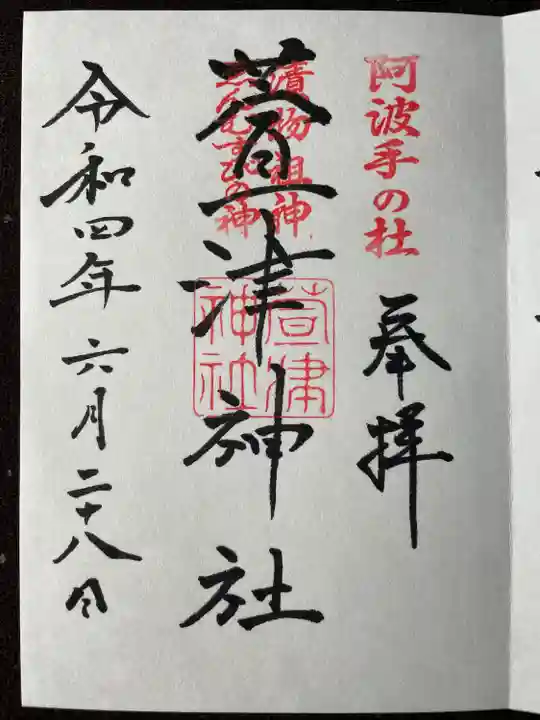 阿波手の杜
奉拝
漬物祖神
縁むすびの神
萱津神社
萱津神社
令和四年六月二十八日